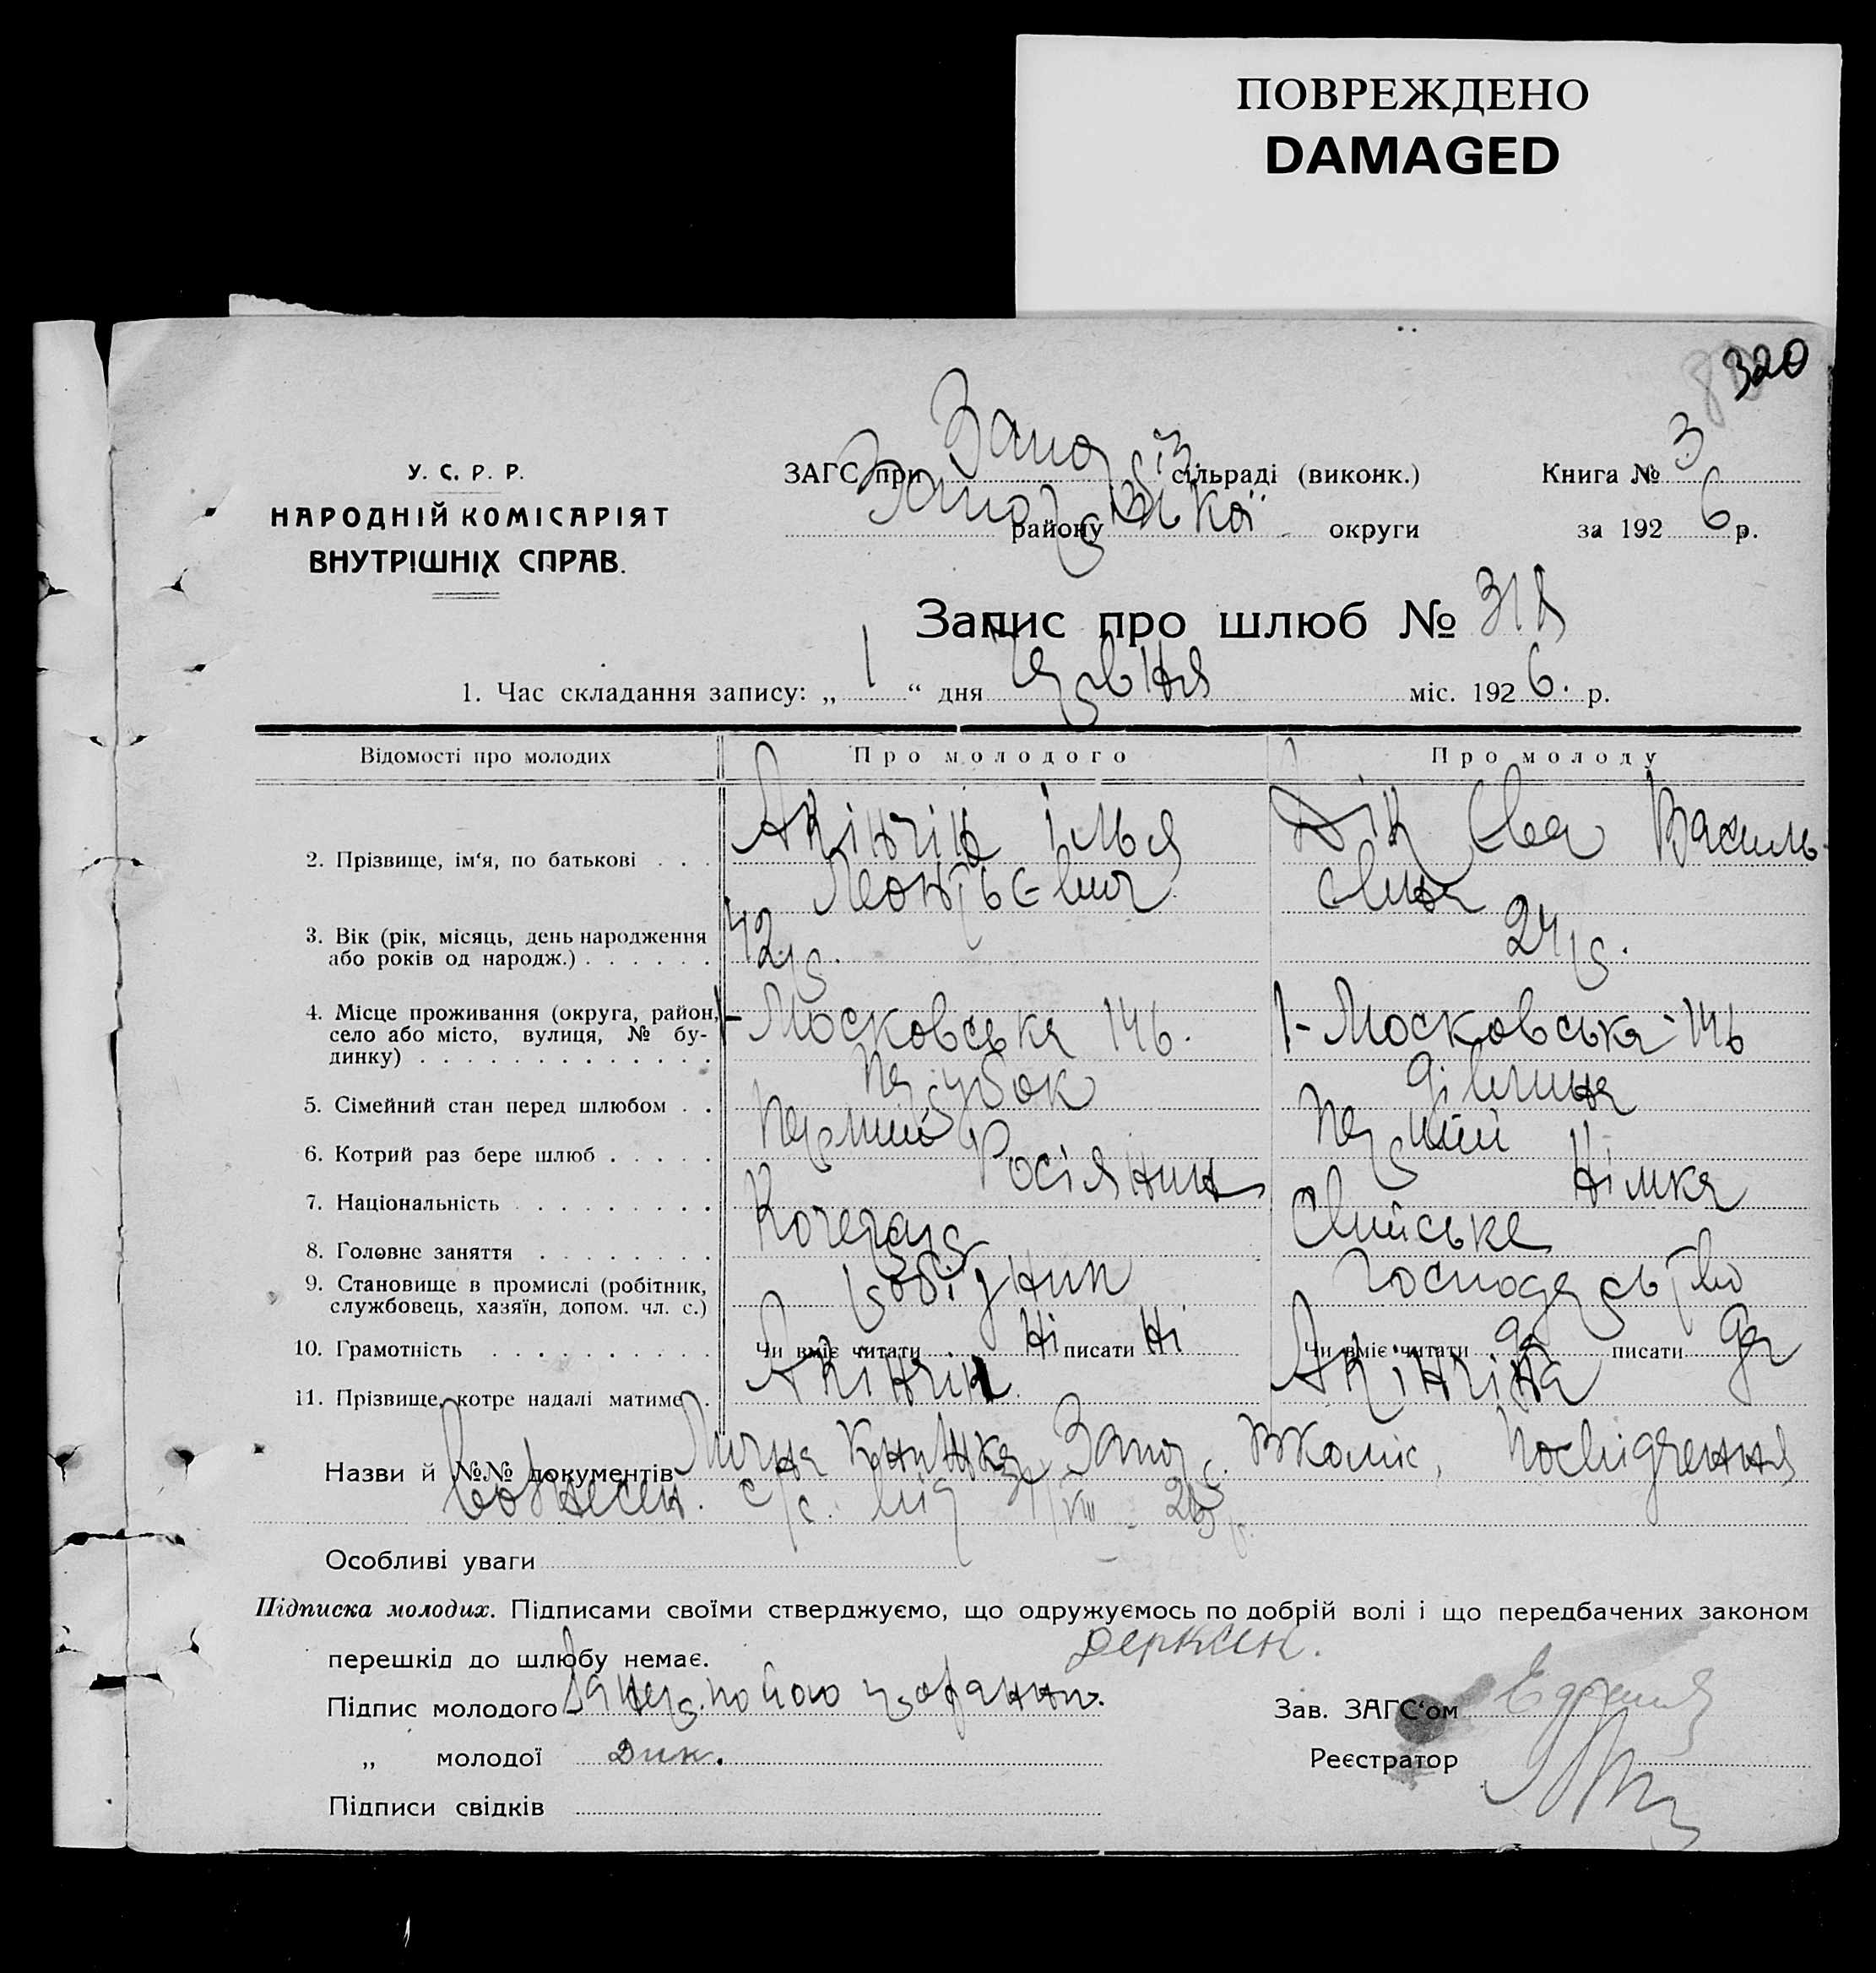 ПОВРЕЖДЕНО
DAMAGED
320
У. С. Р. Р.
НАРОДНІЙ КОМІСАРІЯТ
ВНУТРІШНІХ СПРАВ.
ЗАГС при Запоріз. сільраді (виконк.) Книга № 3
Запорізької району округи за 1926 р.
Запис про шлюб № 318
1. Час складання запису: „ 1 “ дня червня міс. 1926. р.
Відомості про молодих Про молодого Про молоду
2. Прізвище, ім'я, по батькові . . . Акінчін Ілья Дік Єва Василь-
Леонтьєвич євна
3. Вік (рік, місяць, день народження
або років од народж.) . . . . . . 42 р. 24 р.
4. Місце проживання (округа, район, 1-Московська 146. 1-Московська-146
село або місто, вулиця, № бу-
динку) . . . . . . . . . . . . .
5. Сімейний стан перед шлюбом . . парубок дівчина
6. Котрий раз бере шлюб . . . . . перший перший
7. Національність . . . . . . . . . Росіянин Німка
8. Головне заняття . . . . . . . . Кочегар Сільське
9. Становище в промислі (робітник, робітник господарство
службовець, хазяїн, допом. чл. с.)
10. Грамотність . . . . . . . . . . Чи вміє читати ні писати ні Чи вміє читати да писати да
11. Прізвище, котре надалі матиме . Акінчін Акінчіна
Назви й №№ документів Лична книжка Запор. Вкоміс, посвідчення
Вознесен. с/с. від 31/VIII - 25 р.
Особливі уваги
Підписка молодих. Підписами своїми стверджуємо, що одружуємось по добрій волі і що передбачених законом
перешкід до шлюбу немає.
Підпис молодого За непр. по його проханню Зав. ЗАГС'ом
„ молодої Дик. Реєстратор
Підписи свідків